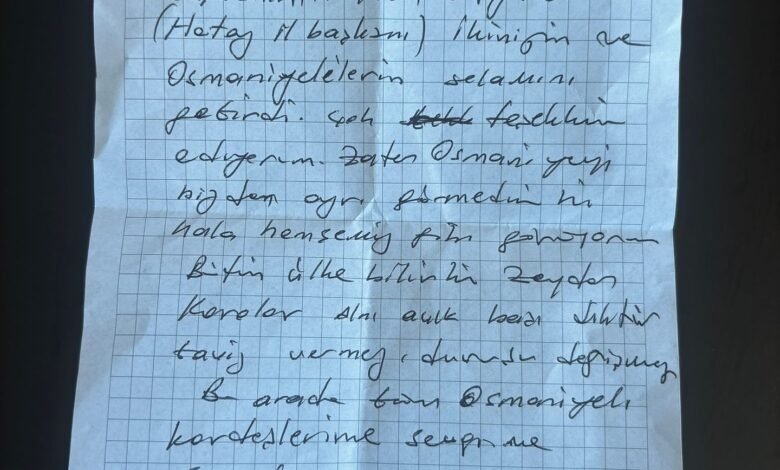 (Hatay il başkanı) ikinizin ve
Osmaniyelilerin selamını
getirdi. çok teşekkür
ediyorum. Zaten Osmaniyeyi
bizden ayrı görmedim ki
hala hemşeriniz gibi görüyorum
Bütün ülke bilir ki Zeydan
Karalar alnı açık başı diktir
taviz vermez, duruşu değişmez
Bu arada tüm Osmaniyeli
kardeşlerime sevgi ve